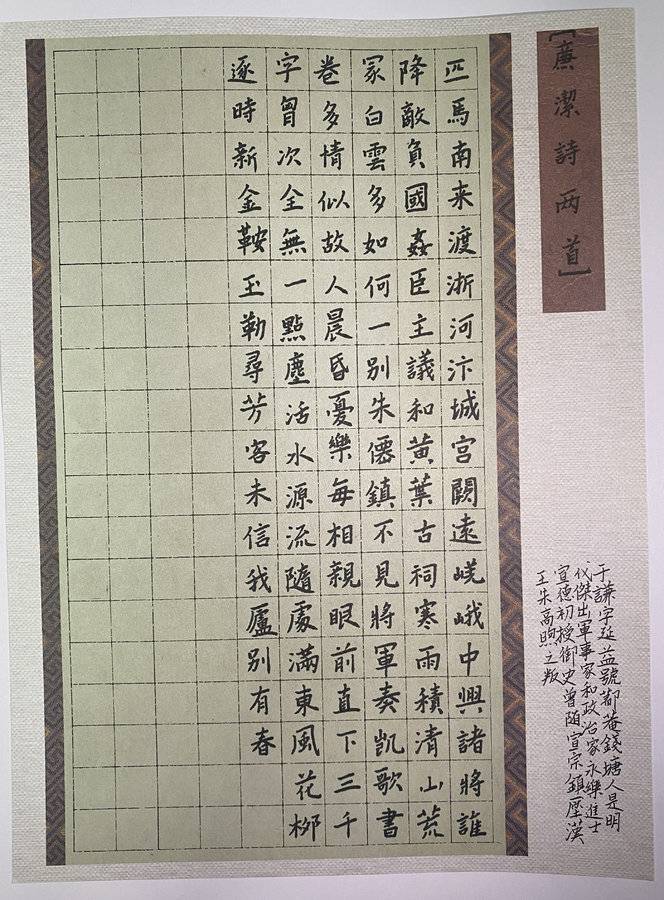 【廉潔詩两首】
匹馬南来渡浙河汴城宫闕遠嵯峨中興諸將誰
降敵負國姦臣主議和黄葉古祠寒雨積清山荒
冢白雲多如何一别朱僊鎮不見將軍奏凱歌書
卷多情似故人晨昏憂樂每相親眼前直下三千
字曾次全無一點塵活水源流隨處滿東風花桞
逐時新金鞍玉勒尋芳客未信我廬别有春
于謙字延益號節菴錢塘人是明
代傑出軍事家和政治家永樂進士
宣德初授御史曾随宣宗鎮壓漢
王朱高煦之叛